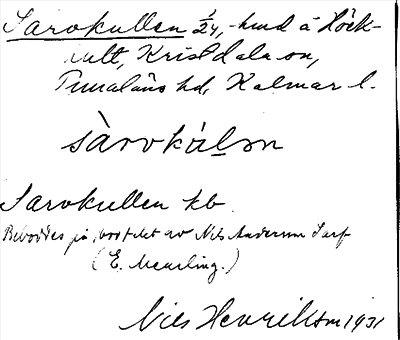 Sarvkullen 1/24,-hmd å Höck-
hult, Kristdala sn,
Tunaläns hd, Kalmar l.
sàrvkálən
Sarvkullen hb.
Beboddes på      av Nils Andersson Sarf
(E. Meurling.)
Nils Henrikson 1931